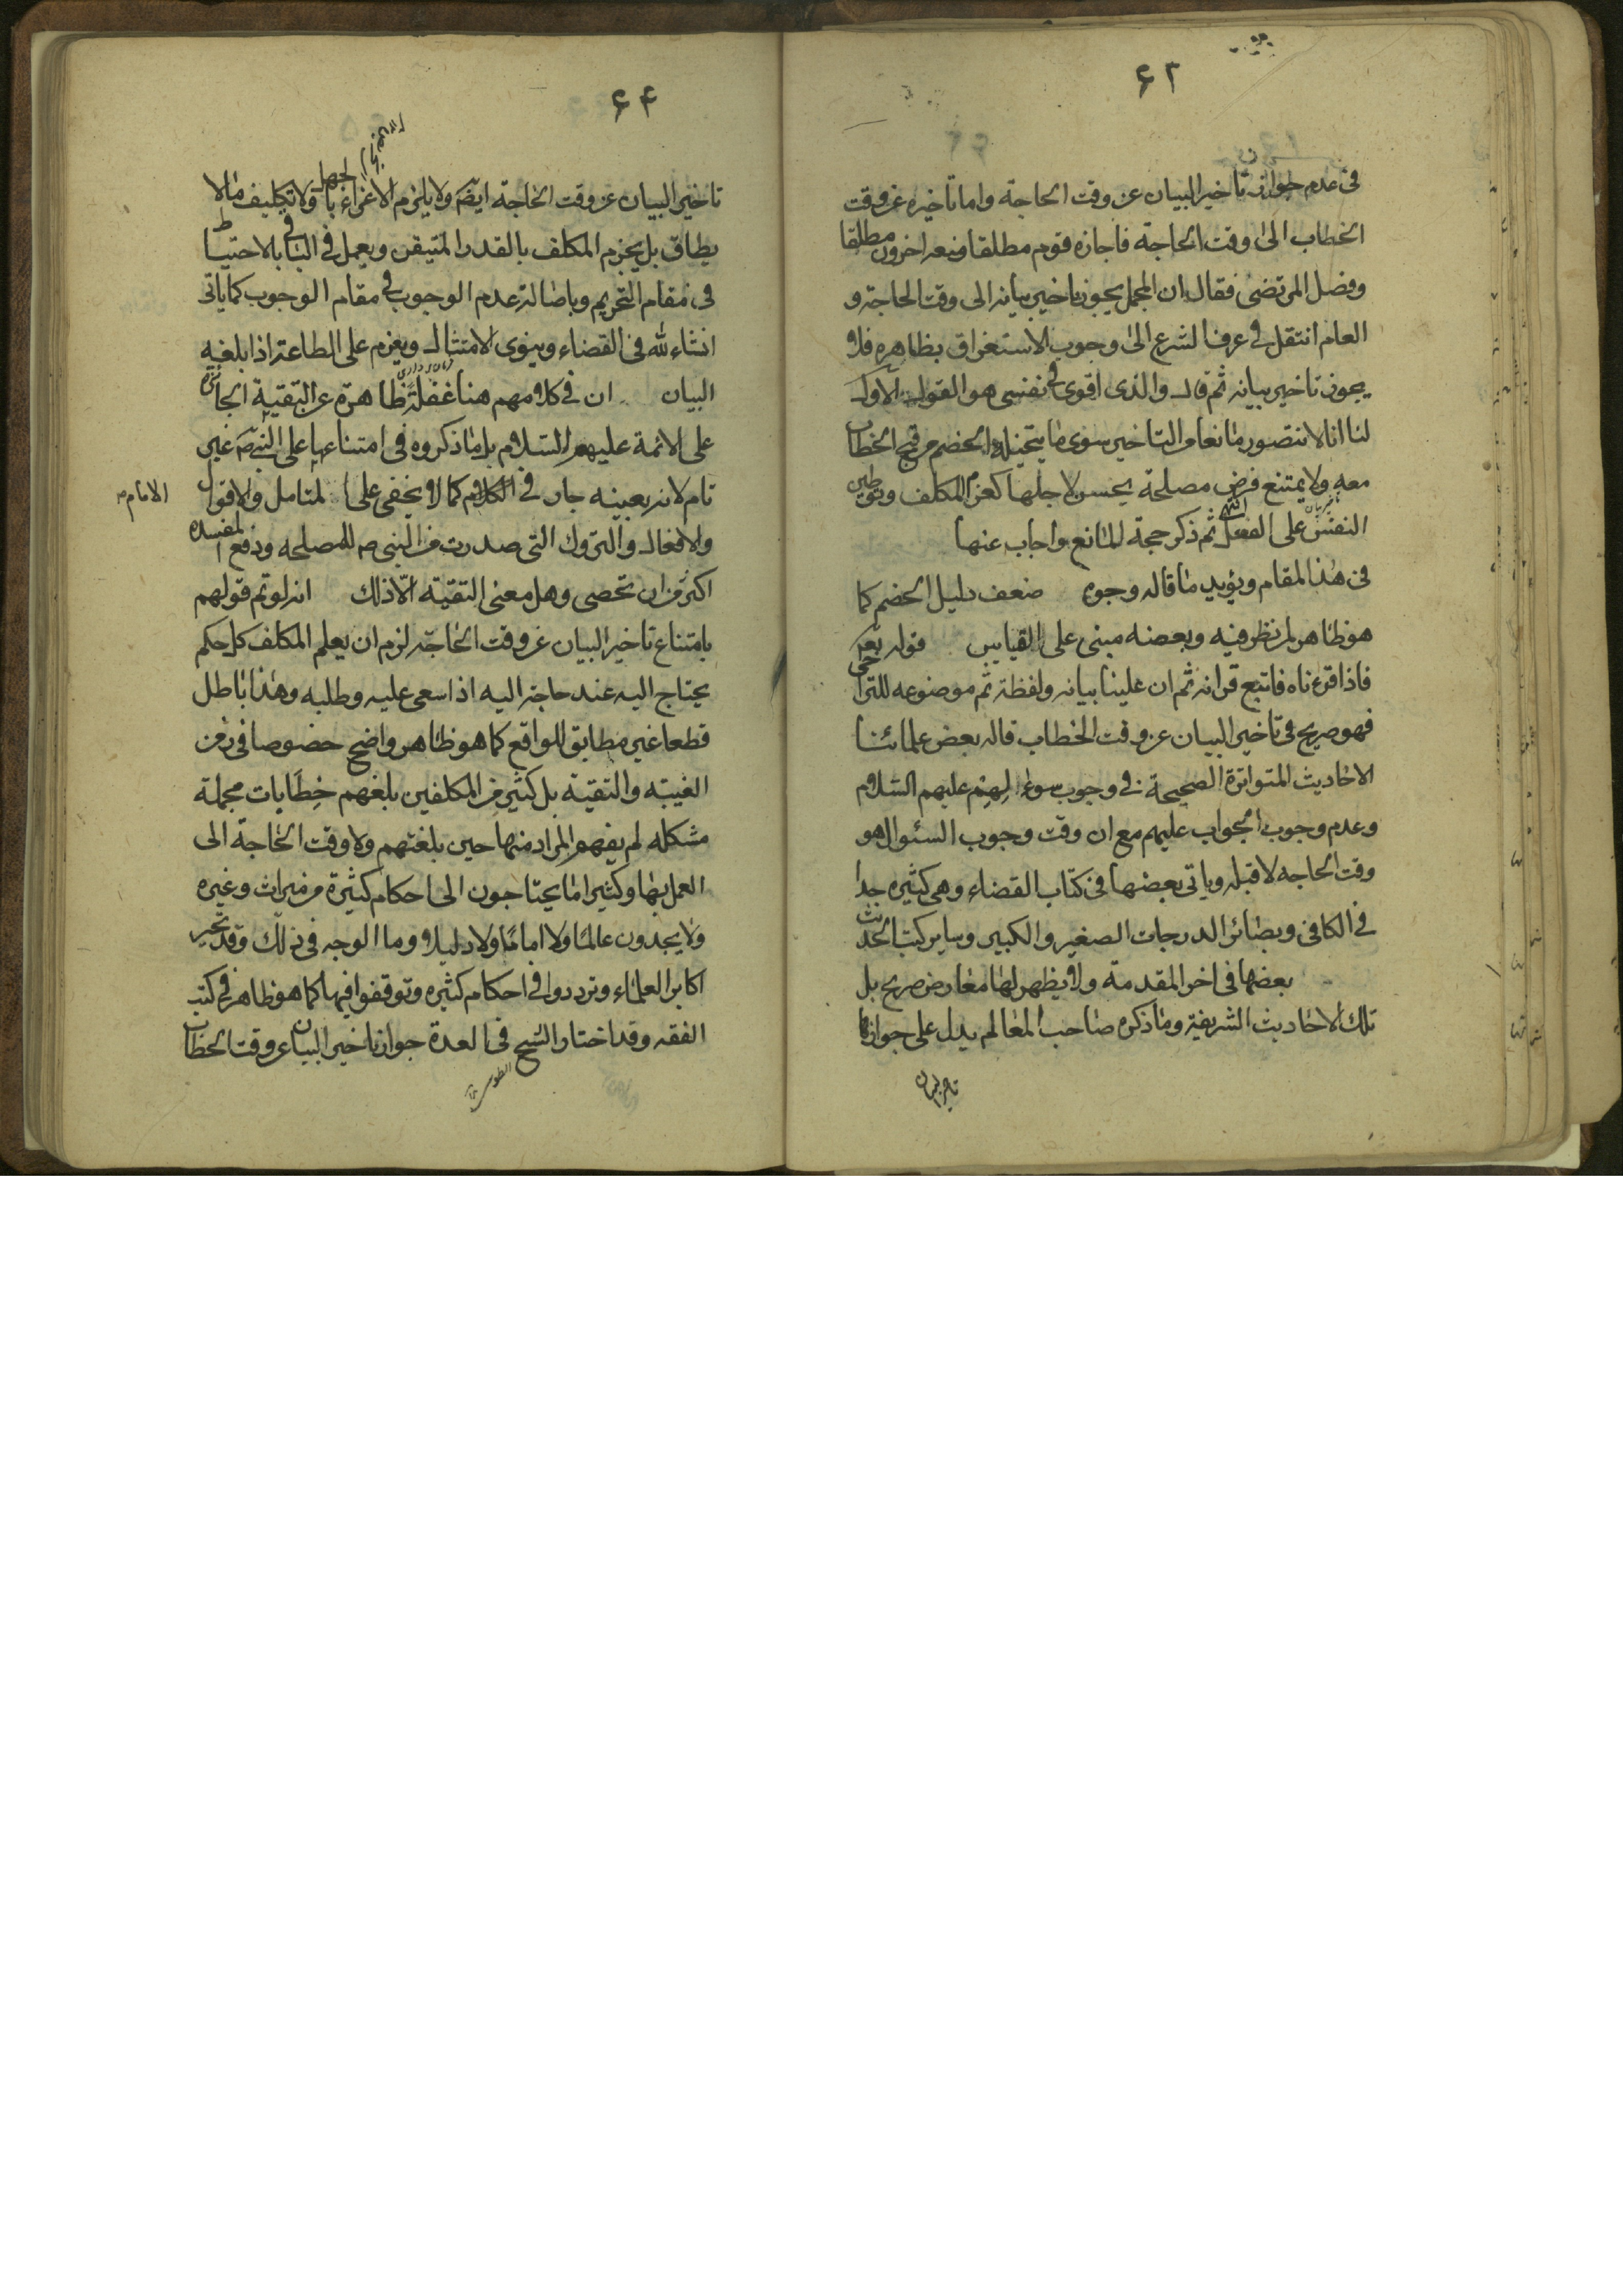 ۶۳
فى عدم جواز تاخير البيان عن وقت الحاجة واما تاخيره عن وقت
الخطاب الى وقت الحاجة فاجازه قوم مطلقا ومنعه اخرون مطلقا
وفصل المرتضى فقال ان المجمل يجوز تاخير بيانه الى وقت الحاجة و
العام انتقل فى عرف الشرع الى وجوب الاستغراق بظاهره فلا
يجوز تاخير بيانه ثم قال والذى اقوى فى نفسى هو القول الاول
لنا انا لا نتصور مانعا من التاخير سوى ما يتخيله الخصم من قبح الخطاب
معه ولا يمتنع فرض مصلحة يحسن لاجلها كعزم المكلف وتوطين
النفس على الفعل ثم ذكر حجة المانع واجاب عنها
فى هذا المقام ويؤيد ما قاله وجوه ضعف دليل الخصم كما
هو ظاهر لمن نظر فيه وبعضه مبنى على القياس قوله تعم
فاذا قرءناه فاتبع قرانه ثم ان علينا بيانه ولفظة ثم موضوعه للتراخى
فهو صريح فى تاخير البيان عن وقت الخطاب قاله بعض علمائنا
الاحاديث المتواترة الصحيحة فى وجوب سؤالهم عليهم السلام
وعدم وجوب الجواب عليهم مع ان وقت وجوب السئوال هو
وقت الحاجه لا قبله وياتى بعضها فى كتاب القضاء وهى كثيره جدا
فى الكافى وبصائر الدرجات الصغير والكبير وساير كتب الحديث
بعضها فى اخر المقدمة ولا يظهر لها معارض صريح بل
تلك الاحاديث الشريفة وما ذكره صاحب المعالم يدل على جواز
تاخير البيان
۶۴
تاخير البيان عن وقت الحاجة ايضَ ولا يلزم الاغراء بالجهل ولا تكليف ما لا
يطاق بل يجزم المكلف بالقدر المتيقن ويعمل فى الباقى بالاحتياط
فى مقام التحريم وباصالة عدم الوجوب فى مقام الوجوب كما ياتى
انشاء لله فى القضاء وينوى الامتثال ويعزم على الطاعة اذا بلغه
البيان ان فى كلامهم هنا غفلة ظاهرة عن التقية الجائزة
على الائمة عليهم السلام بل ما ذكروه فى امتناعها على النبى ص غير
تام لانه بعينه جار فى الكلام كما لا يخفى على المتامل والاقوال
الامام
والافعال والتروك التى صدرت من النبى ص للمصلحه ودفع المفسده
اكثر من ان تحصى وهل معنى التقية الّا ذلك انه لو تم قولهم
بامتناع تاخير البيان عن وقت الحاجة لزم ان يعلم المكلف كل حكم
يحتاج اليه عند حاجته اليه اذا سعى عليه وطلبه وهذا باطل
قطعا غير مطابق للواقع كما هو ظاهر واضح خصوصا فى زمن
الغيبه والتقية بل كثير من المكلفين بلغهم خِطَابات مجملة
مشكله لم يفهموا المراد منها حين بلغتهم ولا وقت الحاجة الى
العمل بها وكثيرا ما يحتاجون الى احكام كثيرة من ميراث وغيره
ولا يجدون عالمًا ولا امامًا ولا دليلا وما الوجه فى ذلك وقد تحير
اكابر العلماء وترددوا فى احكام كثيره وتوقفوا فيها كما هو ظاهر فى كتب
الفقه وقد اختار الشيخ فى العدة جواز تاخير البيان عن وقت الخطاب
الطوسى